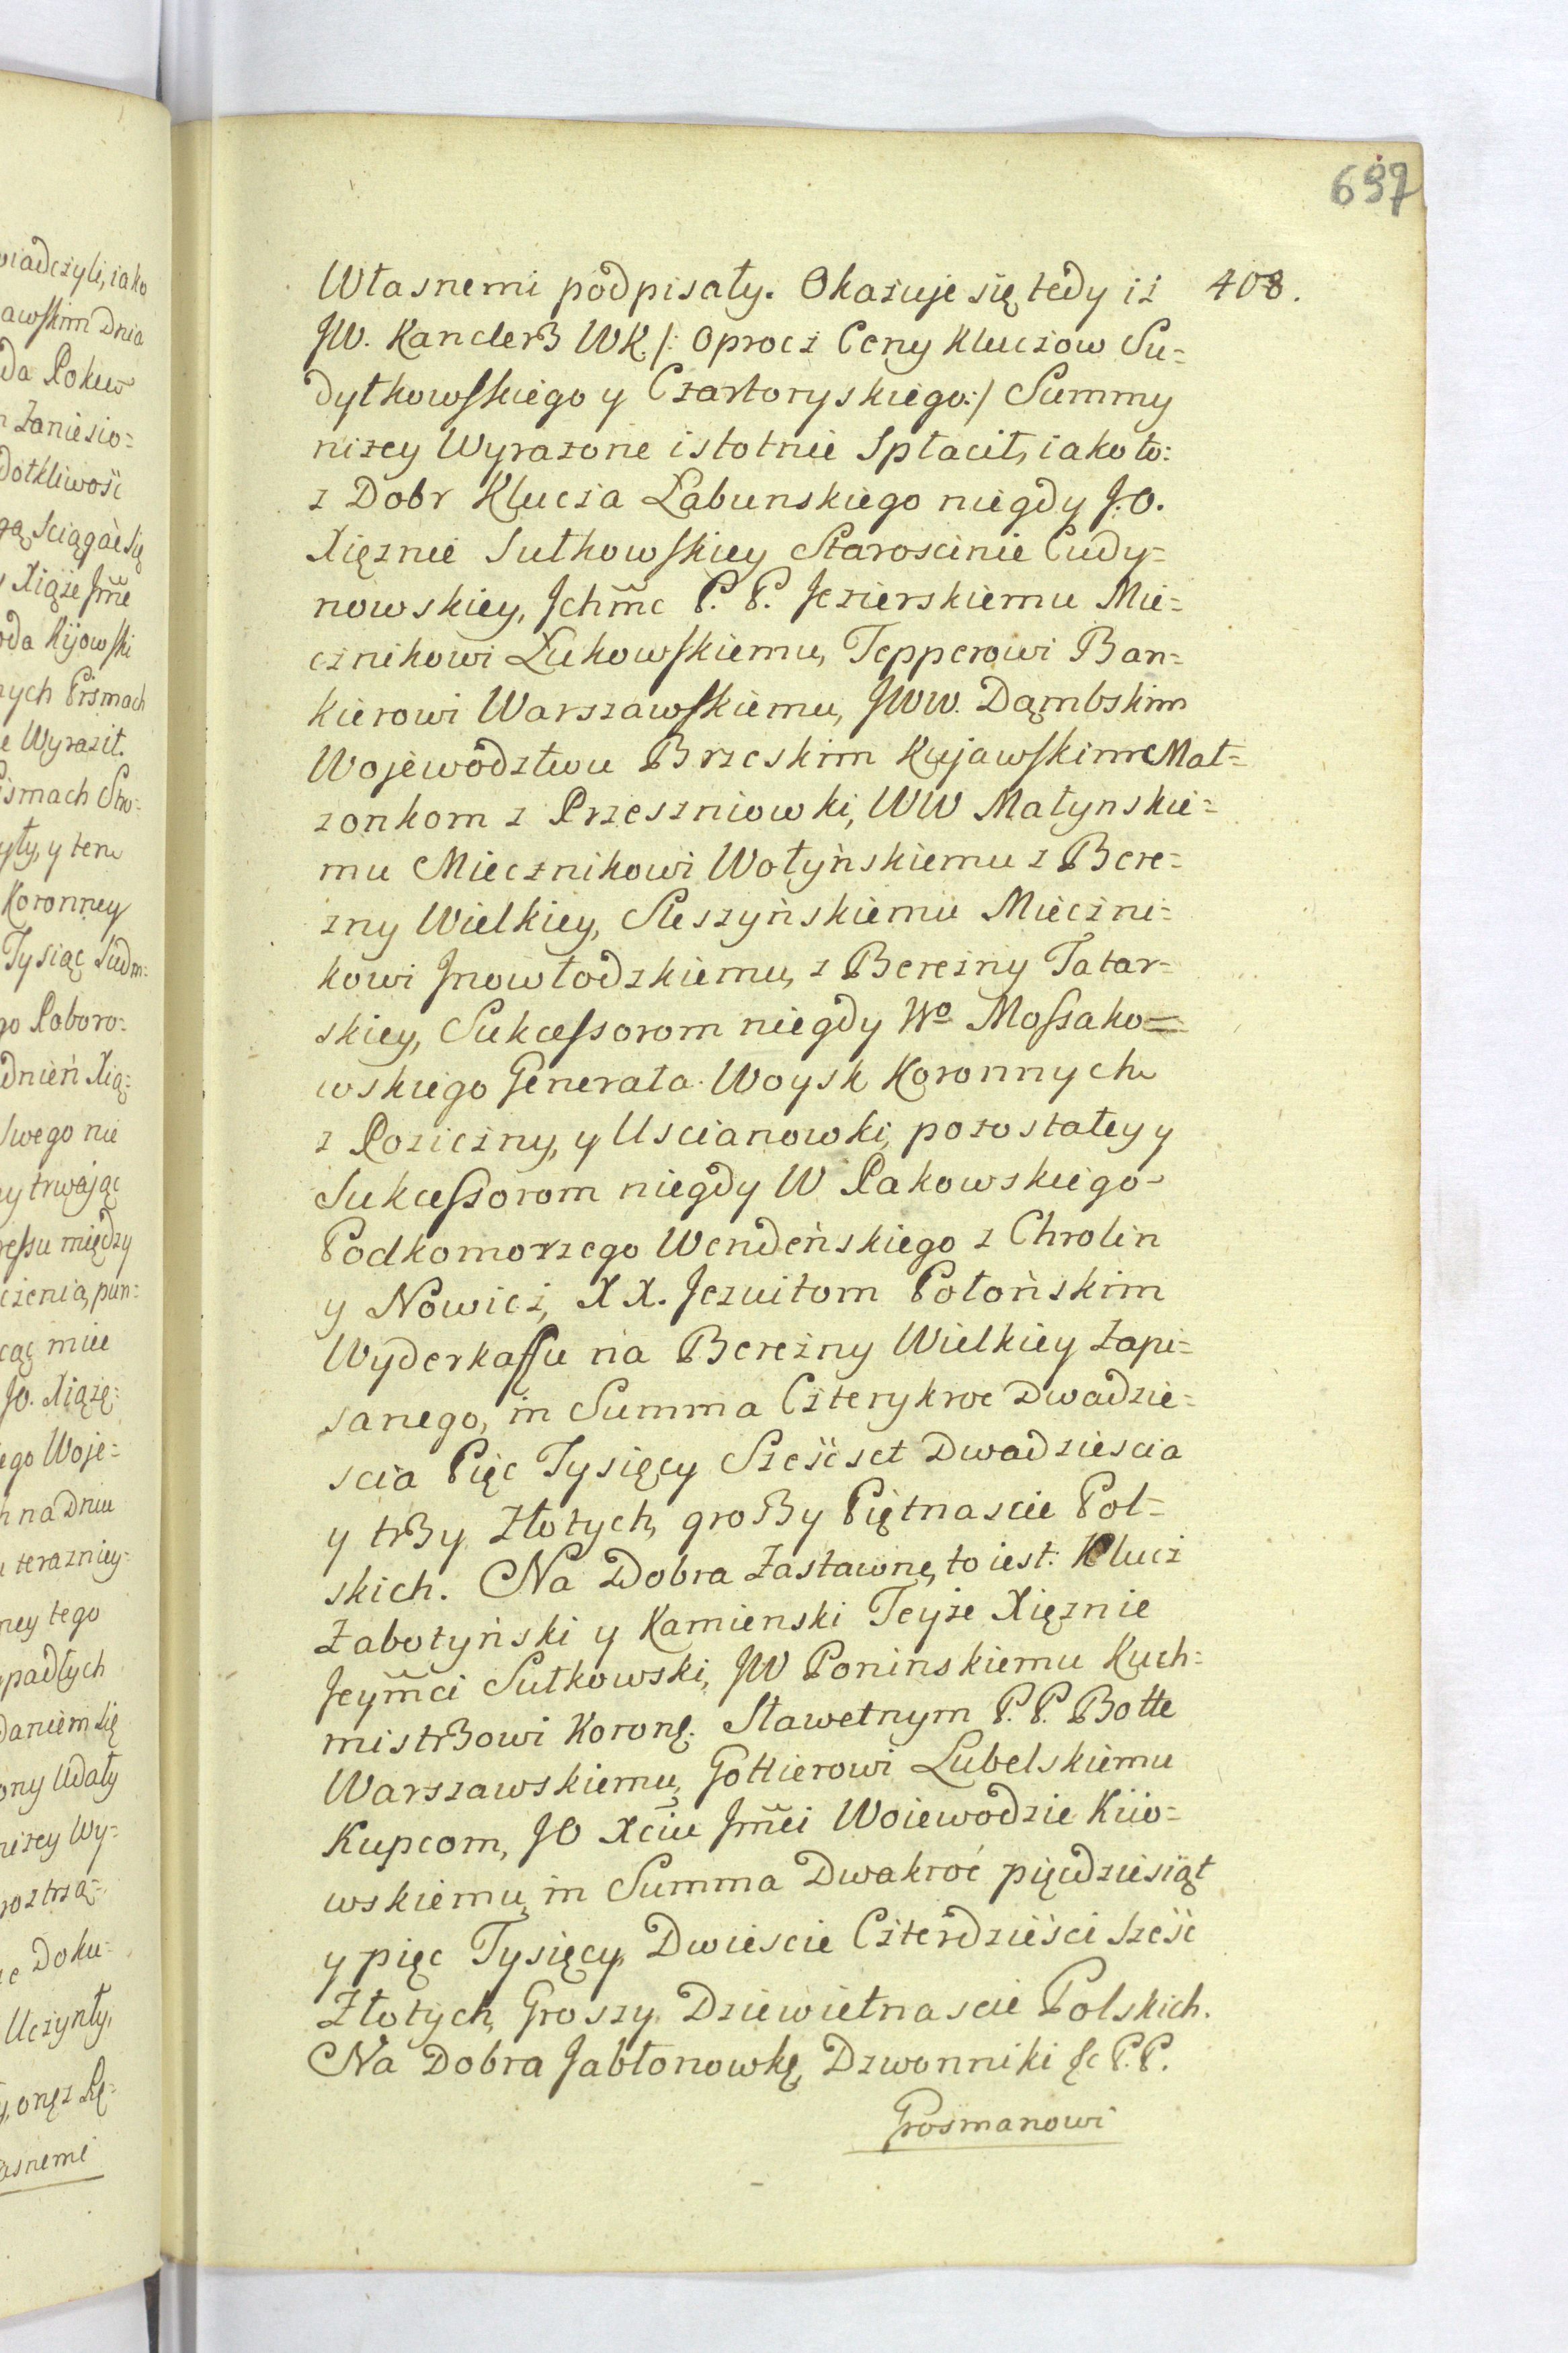 697
408.
Własnemi podpisały. Okazuje się tedy iż
JW. Kanclerz WK /: Oprocz Ceny Kluczow Su=
dyłkowskiego y Czartoryskiego:/ Summy
niżey Wyrazone istotnie Spłacił, iako to:
z Dobr Klucza Łabunskiego niegdy J.O.
Xięznie Sułkowskiey Staroscinie Cudy=
nowskiey, Jchm̃c P. P. Jezierskiemu Mie=
cznikowi Łukowskiemu, Tepperowi Ban=
kierowi Warszawskiemu, JWW. Dąmbskim
Wojewodztwu Brzeskim Kujawskim Mał=
zonkom z Przeszniowki, WW Małynskie=
mu Miecznikowi Wołyńskiemu z Bere=
zny Wielkiey, Steszyńskiemu Mieczni=
kowi Jnowłodzkiemu, z Berezny Tatar=
skiey, Sukcessorom niegdy Wo Mossako=
wskiego Generała Woysk Koronnych
z Poziczny, y Uscianowki, pozostałey y
Sukcessorom niegdy W Pakowskiego
Podkomorzego Wendeńskiego z Chrolin
y Nowicz, XX. Jezuitom Połońskim
Wyderkassu na Berezny Wielkiey Zapi=
sanego, in Summa Czterykroc Dwadzie=
scia Pięc Tysięcy Sześcset Dwadziescia
y trzy Złotych, groszy Piętnascie Pol=
skich. Na Dobra Zastawne, to iest: Klucz
Zabotyński y Kamienski Teyże Xięznie
Jeym̃ci Sułkowski, JW Poninskiemu Kuch=
mistrzowi Koronę. Sławetnym P. P. Botte
Warszawskiemu, Gottierowi Lubelskiemu
Kupcom, JO Xciu Jm̃ci Woiewodzie Kiio=
wskiemu, in Summa Dwakroć pięcdziesiąt
y pięc Tysięcy Dwiescie Czterdzieści sześc
Złotych, Groszy Dziewietnascie Polskich.
Na Dobra Jabłonowkę, Dzwonniki Jc P.P.
Grosmanowi
wiadczyli, iako
awskim Dnia
da Pokuw
Zaniesio=
Dotkliwość
gą sciągaie się
Xiąże Jm̃c
oda Kijowski
nych Pismach
e Wyraził.
ismach Sto=
yły, y ten
Koronney
Tysiąc Siedm=
go Poboro=
dnień Xią=
swego nie
ey trwając
ressu między
czenia, pun=
cąc mice
JO. Xiążę=
ego Woje=
n na Dniu
u teraznіey=
ney tego
padłych
daniem się
ony Udały
niżey Wy=
roztrzą=
ie Doku=
Uczynły,
asnemi